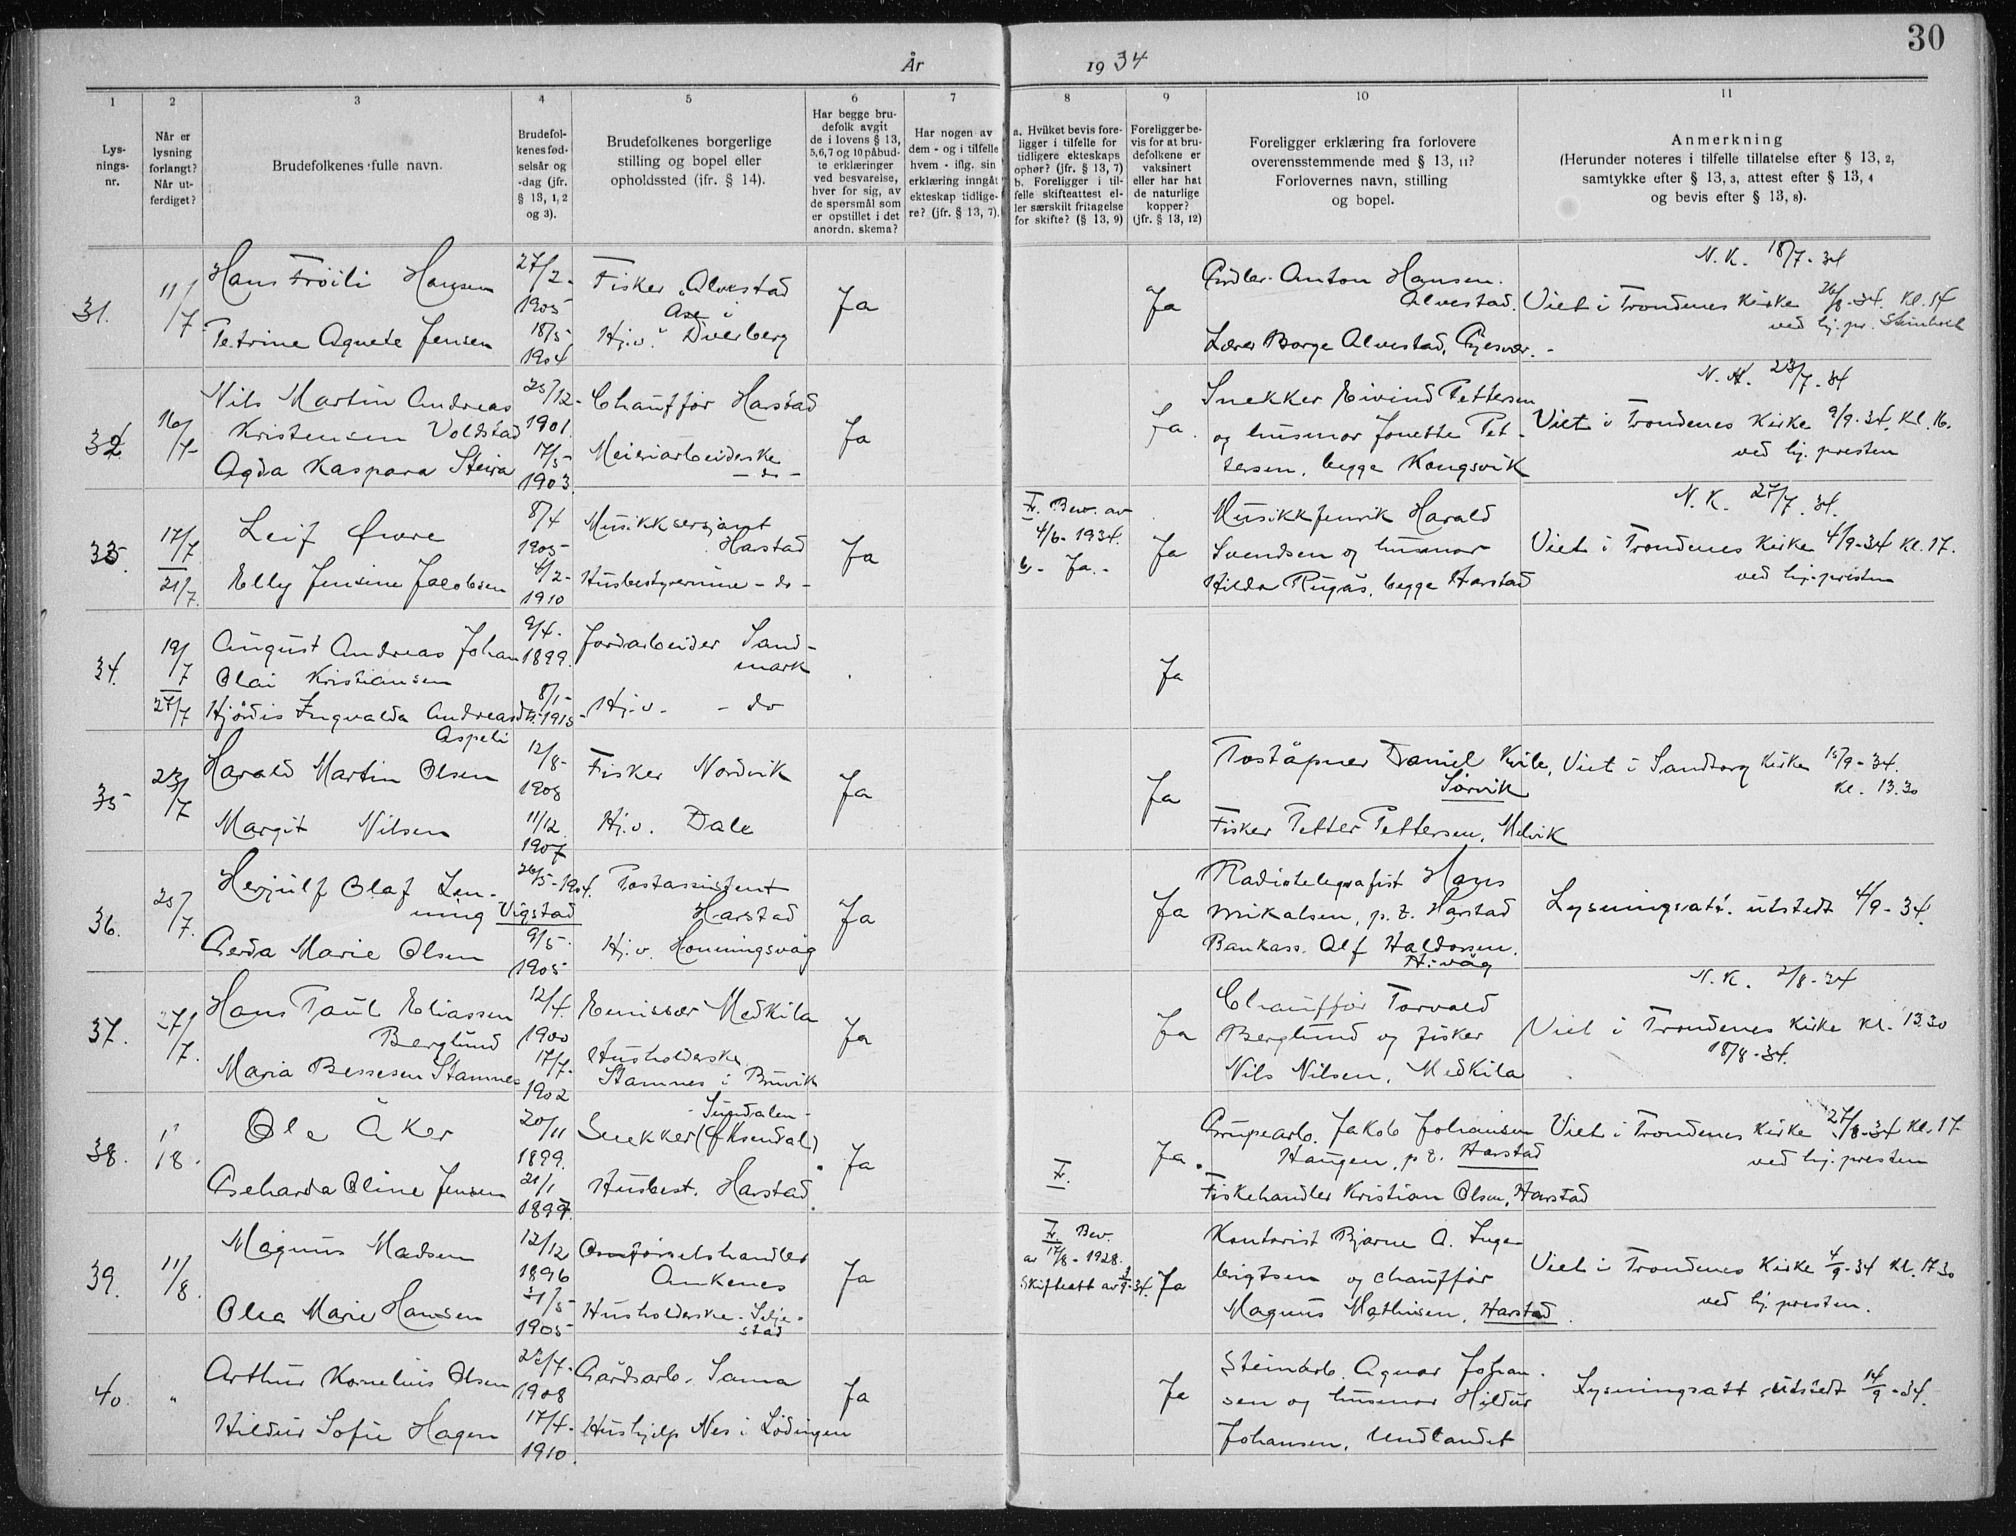 30
År 1934
1
2
3
4
5
6
7
8
9
10
11
Lys-
nings-
nr.
Når er
lysning
forlangt?
Når ut-
ferdiget?
Brudefolkenes fulle navn.
Brudefol-
kenes fød-
selsår og
-dag (jfr.
§ 13, 1, 2
og 3).
Brudefolkenes borgerlige
stilling og bopel eller
opholdssted (jfr. § 14).
Har begge bru-
defolk avgit
de i lovens § 13,
5,6,7 og 10 påbud-
te erklæringer
ved besvarelse,
hver for sig, av
de spørsmål som
er opstillet i det
anordn. skema?
Har nogen av
dem - og i tilfelle
hvem - iflg. sin
erklæring inngått
ekteskap tidlige-
re? (jfr. § 13, 7).
a. Hvilket bevis fore-
ligger i tilfelle for
tidligere ekteskaps
ophør? (jfr. § 13, 7)
b. Foreligger i til-
felle skifteattest el-
ler særskilt fritagelse
for skifte? (§ 13, 9)
Foreligger be-
vis for at bru-
defolkene er
vaksinert
eller har hat
de naturlige
kopper?
(jfr. § 13, 12)
Foreligger erklæring fra forlovere
overensstemmende med § 13, 11?
Forlovernes navn, stilling
og bopel.
Anmerkning
(Herunder noteres i tilfelle tillatelse efter § 13, 2,
samtykke efter § 13, 3, attest efter § 13, 4
og bevis efter § 13, 8).
31.
11/7
Hans Fröili Hansen
27/2-
1905
Fisker, Alvestad
Petrine Agnete Jensen
18/5
1904
Åse i
Hj.v. Dverberg
Ja
Ja
Anton Hansen.
Alvestad.
Lærer Borge Alvestad,
N.K. 18/7-34
Viet i Trondenes Kirke 26/8-34. Kl. 14
ved hj. pr. Steinholt
32.
16/7-
Nils Martin Andreas
Kristensen Voldstad
25/12-
1901.
Chauffør Harstad
Agda Kaspara Steira
17/5-
1903.
Meieriarbeiderske
- do -
Ja
Ja.
Snekker Eivind Pettersen
og husmor Jonette Pet-
tersen, begge Kongsvik
N.K. 23/7-34
Viet i Trondenes Kirke 9/9-34. Kl. 16.
ved hj. presten
33.
17/7
21/7.
Leif Øwre
8/4
1905
Musikksersjant
Harstad
Elly Jensine Jacobsen
4/2-
1910
Husbestyrerinne - do -
Ja
Bew. av
4/6-1934.
b- Ja.-
Ja
Musikkfenrik Harald
Svendsen og husmor
Hilda Rugås, begge Harstad
N.K. 27/7.34.
Viet i Trondenes Kirke 4/9-34 Kl. 17.
ved hj. presten
34.
19/7
27/7
August Andreas Johan
Olai Kristiansen
9/4.
1899.
Jordarbeider Sand-
mark
Hjørdis Ingvalda Andreasdtr.
Aspeli
8/1-
1913
Hj.v. - do
Ja
35
23/7
Harald Martin Olsen
12/8-
1908
Fisker Nordvik
Margit Nilsen
11/12
1907
Hj.v. Dale
Ja
Ja
Poståpner Daniel Kvile,
Sørvik
Fisker Petter Pettersen, Melvik
Viet i Sandtorg Kirke 15/9-34.
Kl. 13.30
36.
25/7.
Herjulf Olaf Len-
ning Vigstad
26/5-1904.
Postassistent
Harstad
Gerda Marie Olsen
9/5-
1905
Hj.v. Honningsvåg
Ja
Ja
Radiotelegrafist Hans
Mikalsen, p.t. Harstad
Bankass. Alf Haldorsen.
H:våg
Lysningsatt. utstedt 4/9-34.
37.
27/7.
Hans Paul Eliassen
Berglund
12/4.
1900
Emissær Medkila
Maria Bessesen Stamnes
17/7-
1902
Husholderske
Stamnes i Bruvik
Ja
Ja
Chauffør Torvald
Berglund og fisker
Nils Nilsen, Medkila
N.K. 2/8-34
Viet i Trondenes Kirke Kl. 13.30
18/8-34.
38.
18.
Ole Åker
20/11
1899.
Sundalen-
Snekker (Øksendal)
Geharda Oline Jensen
21/1
1897.
Husbest. Harstad
Ja
Ja.
Grupearb. Jakob Johansen
Haugen, p.t. Harstad
Fiskehandler Kristian Olsen, Harstad
Viet i Trondenes Kirke 27/8-34 Kl. 17
ved hj. presten
39.
11/8.
Magnus Madsen
12/12
1896
Omførselshandler
Ankenes
Olea Marie Hansen
31/5
1905
Husholderske. Selje-
stad
Ja
Bev.
av 17/8-1928.
Skifteatt av 3/9-34.
Ja
Kontorist Bjarne A. Inge-
brigtsen og chauffør
Magnus Mathisen, Harstad.
Viet i Trondenes Kirke 4/9-34 Kl. 17.30
ved hj. presten.
40.
"
Arthur Kornelius Olsen
1908
Gårdsarb. Sama
Hildur Sofie Hagen
17/4-
1910.
Hushjelp Nes i Lödingen
Ja
Ja
Steinarb. Agnar Johan-
sen og husmor Hildur
Johansen, Undlandet
Lysningsatt. utstedt 14/9-34.